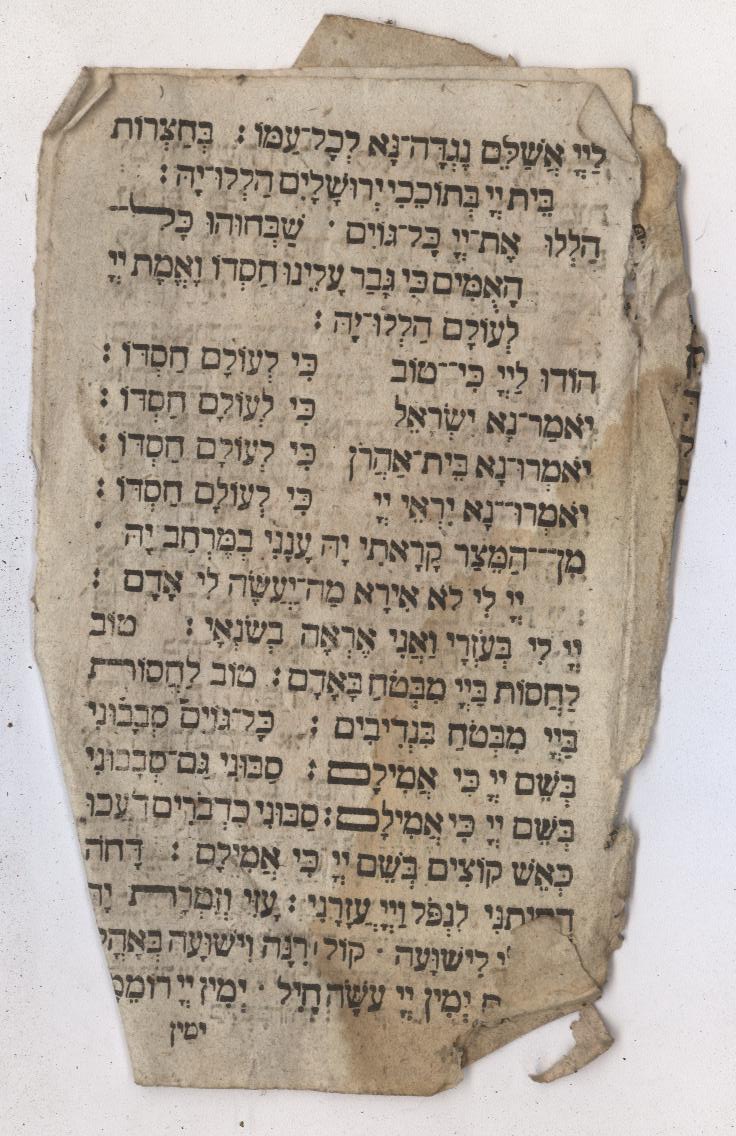 לַיְיָ אֲשַׁלֵּם נֶגְדָה־נָּא לְכָל־עַמּוֹ׃ בְּחַצְרוֹת
בֵּית יְיָ בְּתוֹכֵכִי יְרוּשָׁלָיִם הַלְלוּ־יָהּ׃
הַלְלוּ אֶת־יְיָ כָּל־גּוֹיִם · שַׁבְּחוּהוּ כָּל־
הָאֻמִּים כִּי גָבַר עָלֵינוּ חַסְדּוֹ וֶאֱמֶת יְיָ
לְעוֹלָם הַלְלוּ־יָהּ׃
הוֹדוּ לַיְיָ כִּי־טוֹב כִּי לְעוֹלָם חַסְדּוֹ׃
יֹאמַר־נָא יִשְׂרָאֵל כִּי לְעוֹלָם חַסְדּוֹ׃
יֹאמְרוּ־נָא בֵית־אַהֲרֹן כִּי לְעוֹלָם חַסְדּוֹ׃
יֹאמְרוּ־נָא יִרְאֵי יְיָ כִּי לְעוֹלָם חַסְדּוֹ׃
מִן־הַמֵּצַר קָרָאתִי יָּהּ עָנָנִי בַמֶּרְחַב יָהּ ·
יְיָ לִי לֹא אִירָא מַה־יַּעֲשֶׂה לִי אָדָם׃
יְיָ לִי בְּעֹזְרָי וַאֲנִי אֶרְאֶה בְשֹׂנְאָי׃ טוֹב
לַחֲסוֹת בַּיְיָ מִבְּטֹחַ בָּאָדָם׃ טוֹב לַחֲסוֹת
בַּיְיָ מִבְּטֹחַ בִּנְדִיבִים׃ כָּל־גּוֹיִם סְבָבוּנִי
בְּשֵׁם יְיָ כִּי אֲמִילַם׃ סַבּוּנִי גַם־סְבָבוּנִי
בְּשֵׁם יְיָ כִּי אֲמִילַם׃ סַבּוּנִי כִדְבֹרִים דֹּעֲכוּ
כְּאֵשׁ קוֹצִים בְּשֵׁם יְיָ כִּי אֲמִילַם׃ דַּחֹה
דְחִיתַנִי לִנְפֹּל וַיְיָ עֲזָרָנִי׃ עָזִּי וְזִמְרָת יָהּ
לִישׁוּעָה · קוֹל רִנָּה וִישׁוּעָה בְּאָהֳלֵ
יְמִין יְיָ עֹשָׂה חָיִל · יְמִין יְיָ רוֹמֵמָ
ימין